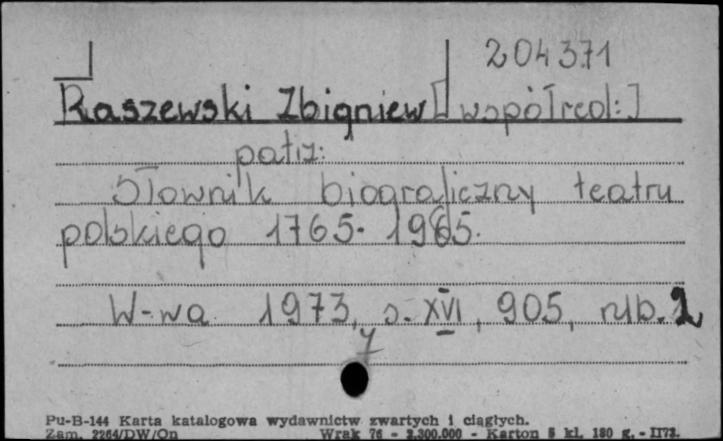 204371
Raszewski Zbigniew [współred:]
patrz:
Słownik biograficzny teatru
polskiego 1765-1965.
W-wa 1973, s. XVI, 905, nlb. 2
7
Pu-B-144 Karta katalogowa wydawnictw zwartych i ciągłych.
Zam. 2264/DW/On Wrak 76 - 3,300.000 - Karton 5 kl. 180 g. - II72.